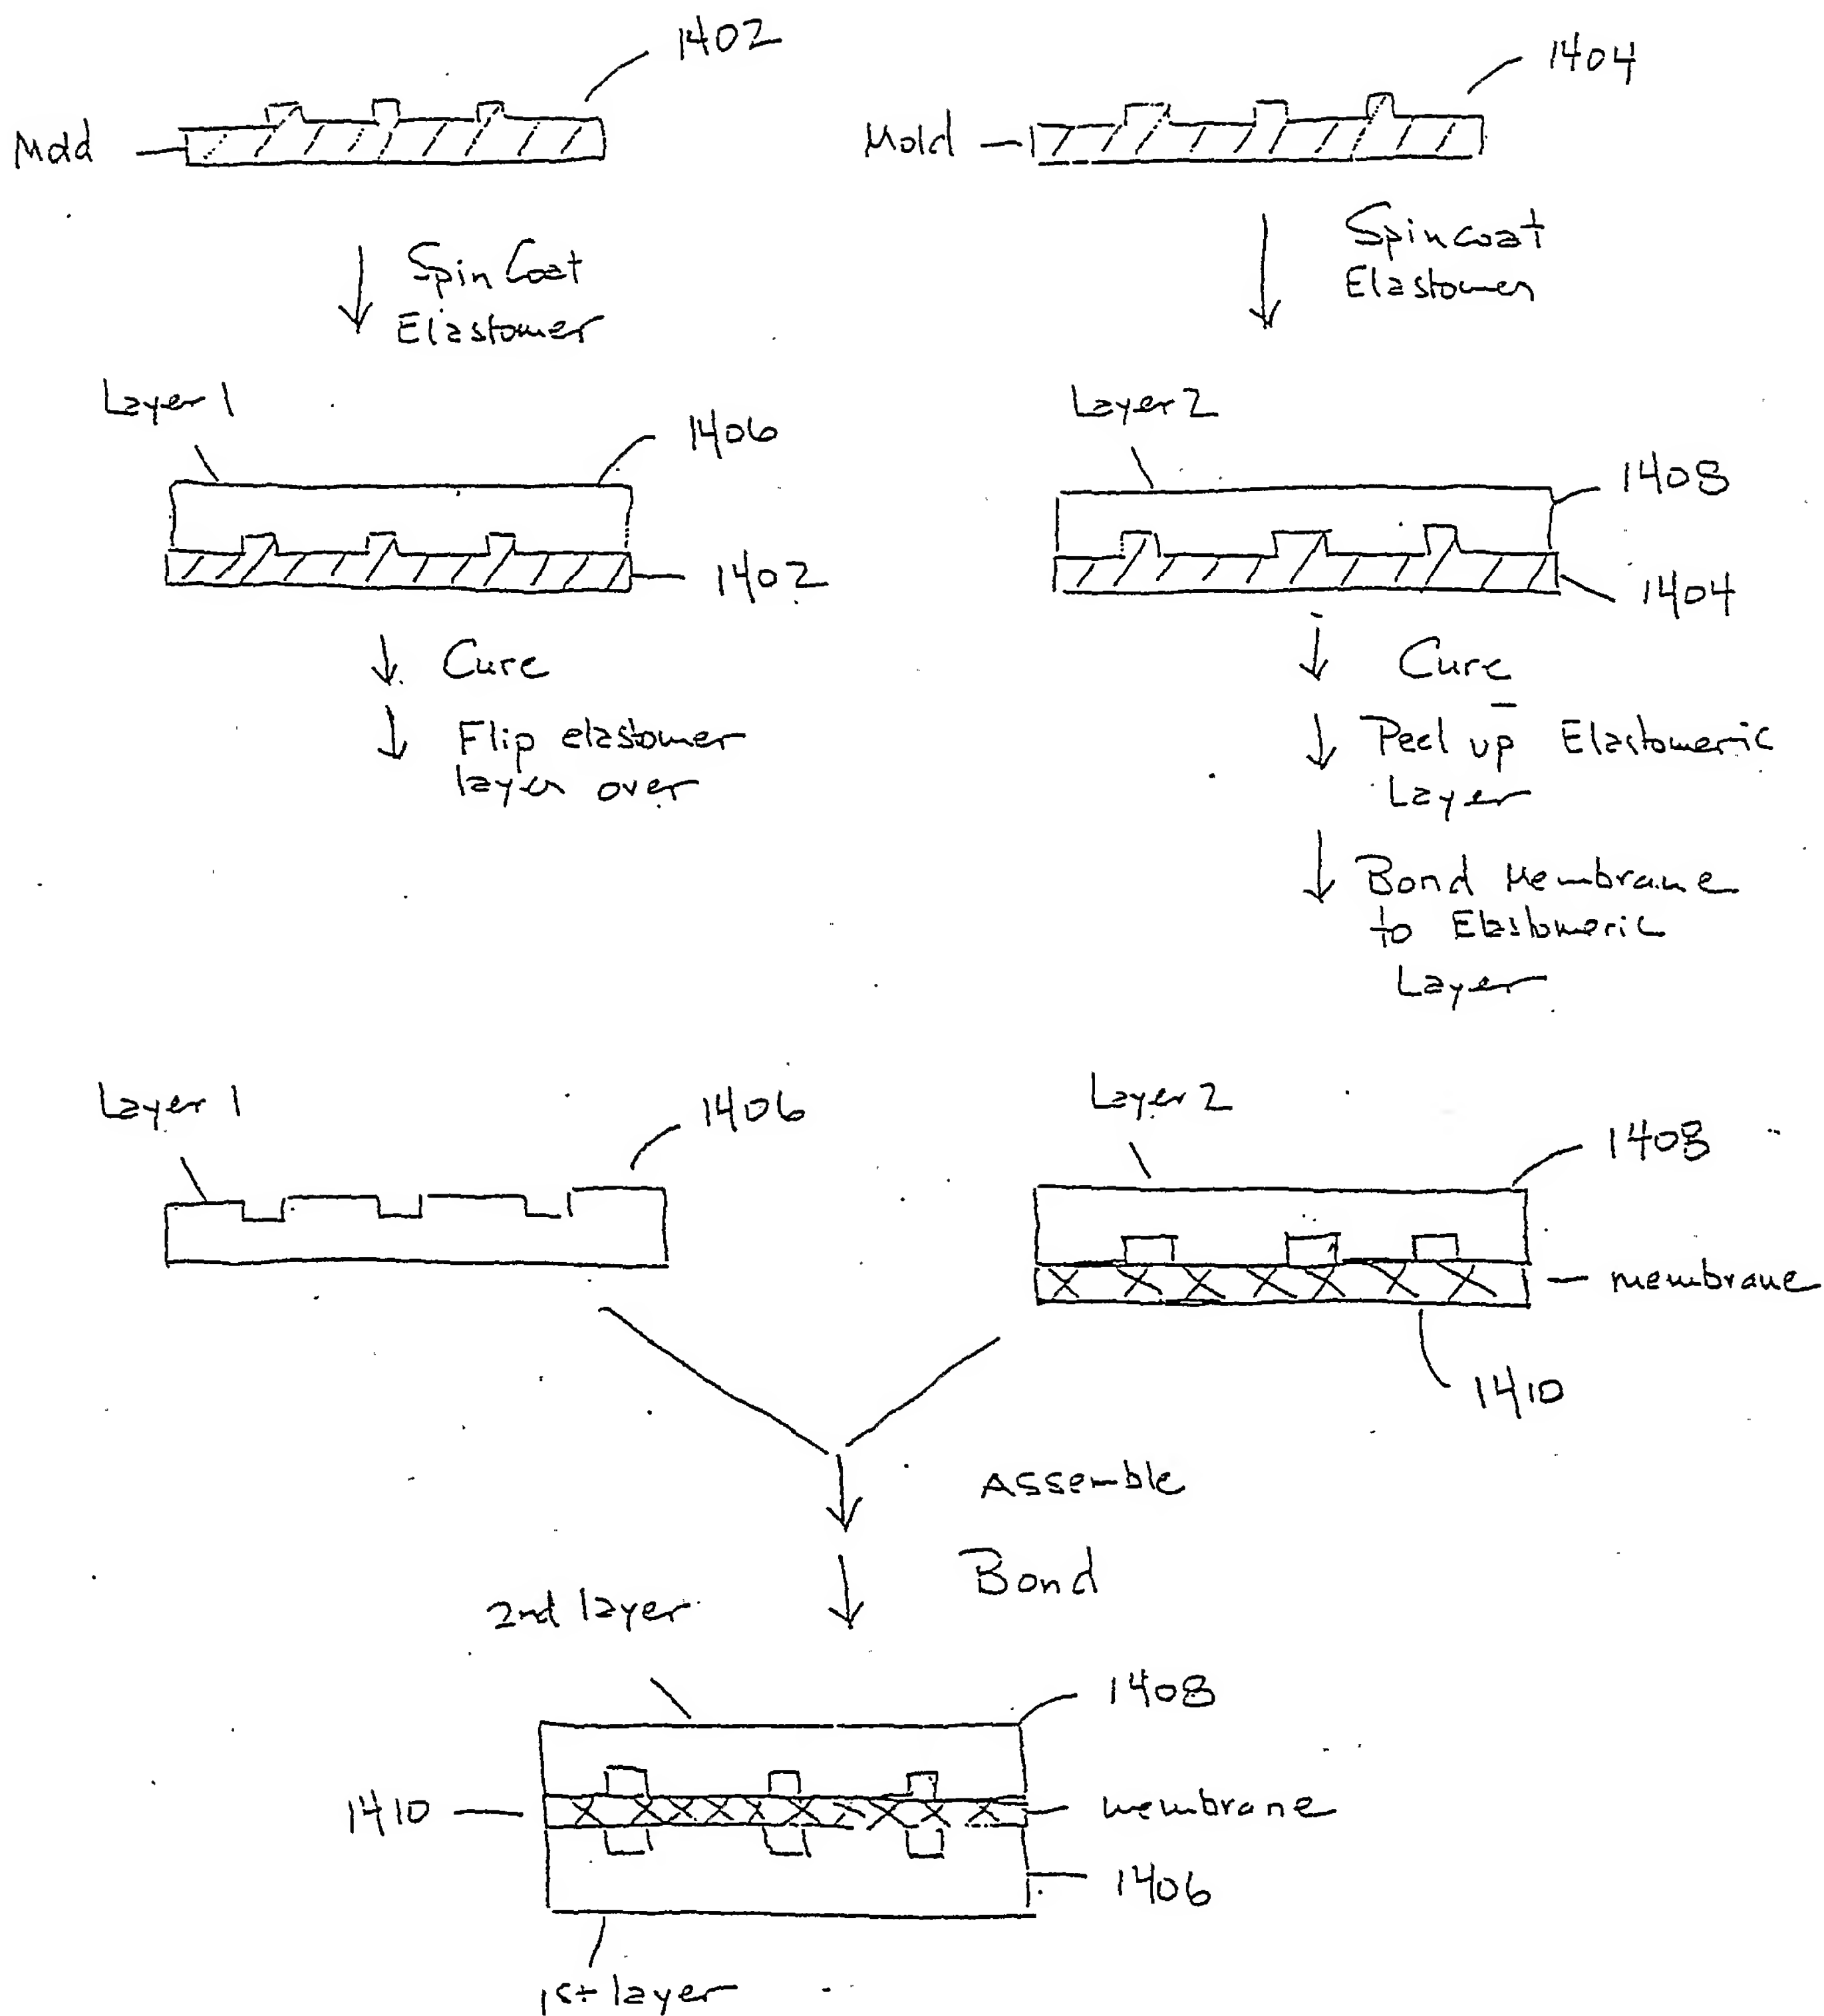 1402
Mold
Spin Coat
Elastomer
Layer 1
1406
1402
Cure
Flip elastomer
layer over
1404
Mold
Spin coat
Elastomer
Layer 2
1408
1404
Cure
Peel up Elastomeric
Layer
Bond Membrane
to Elastomeric
Layer
Layer 1
1406
Layer 2
1408
membrane
1410
Assemble
Bond
2nd layer
1408
1410
membrane
1406
1st layer